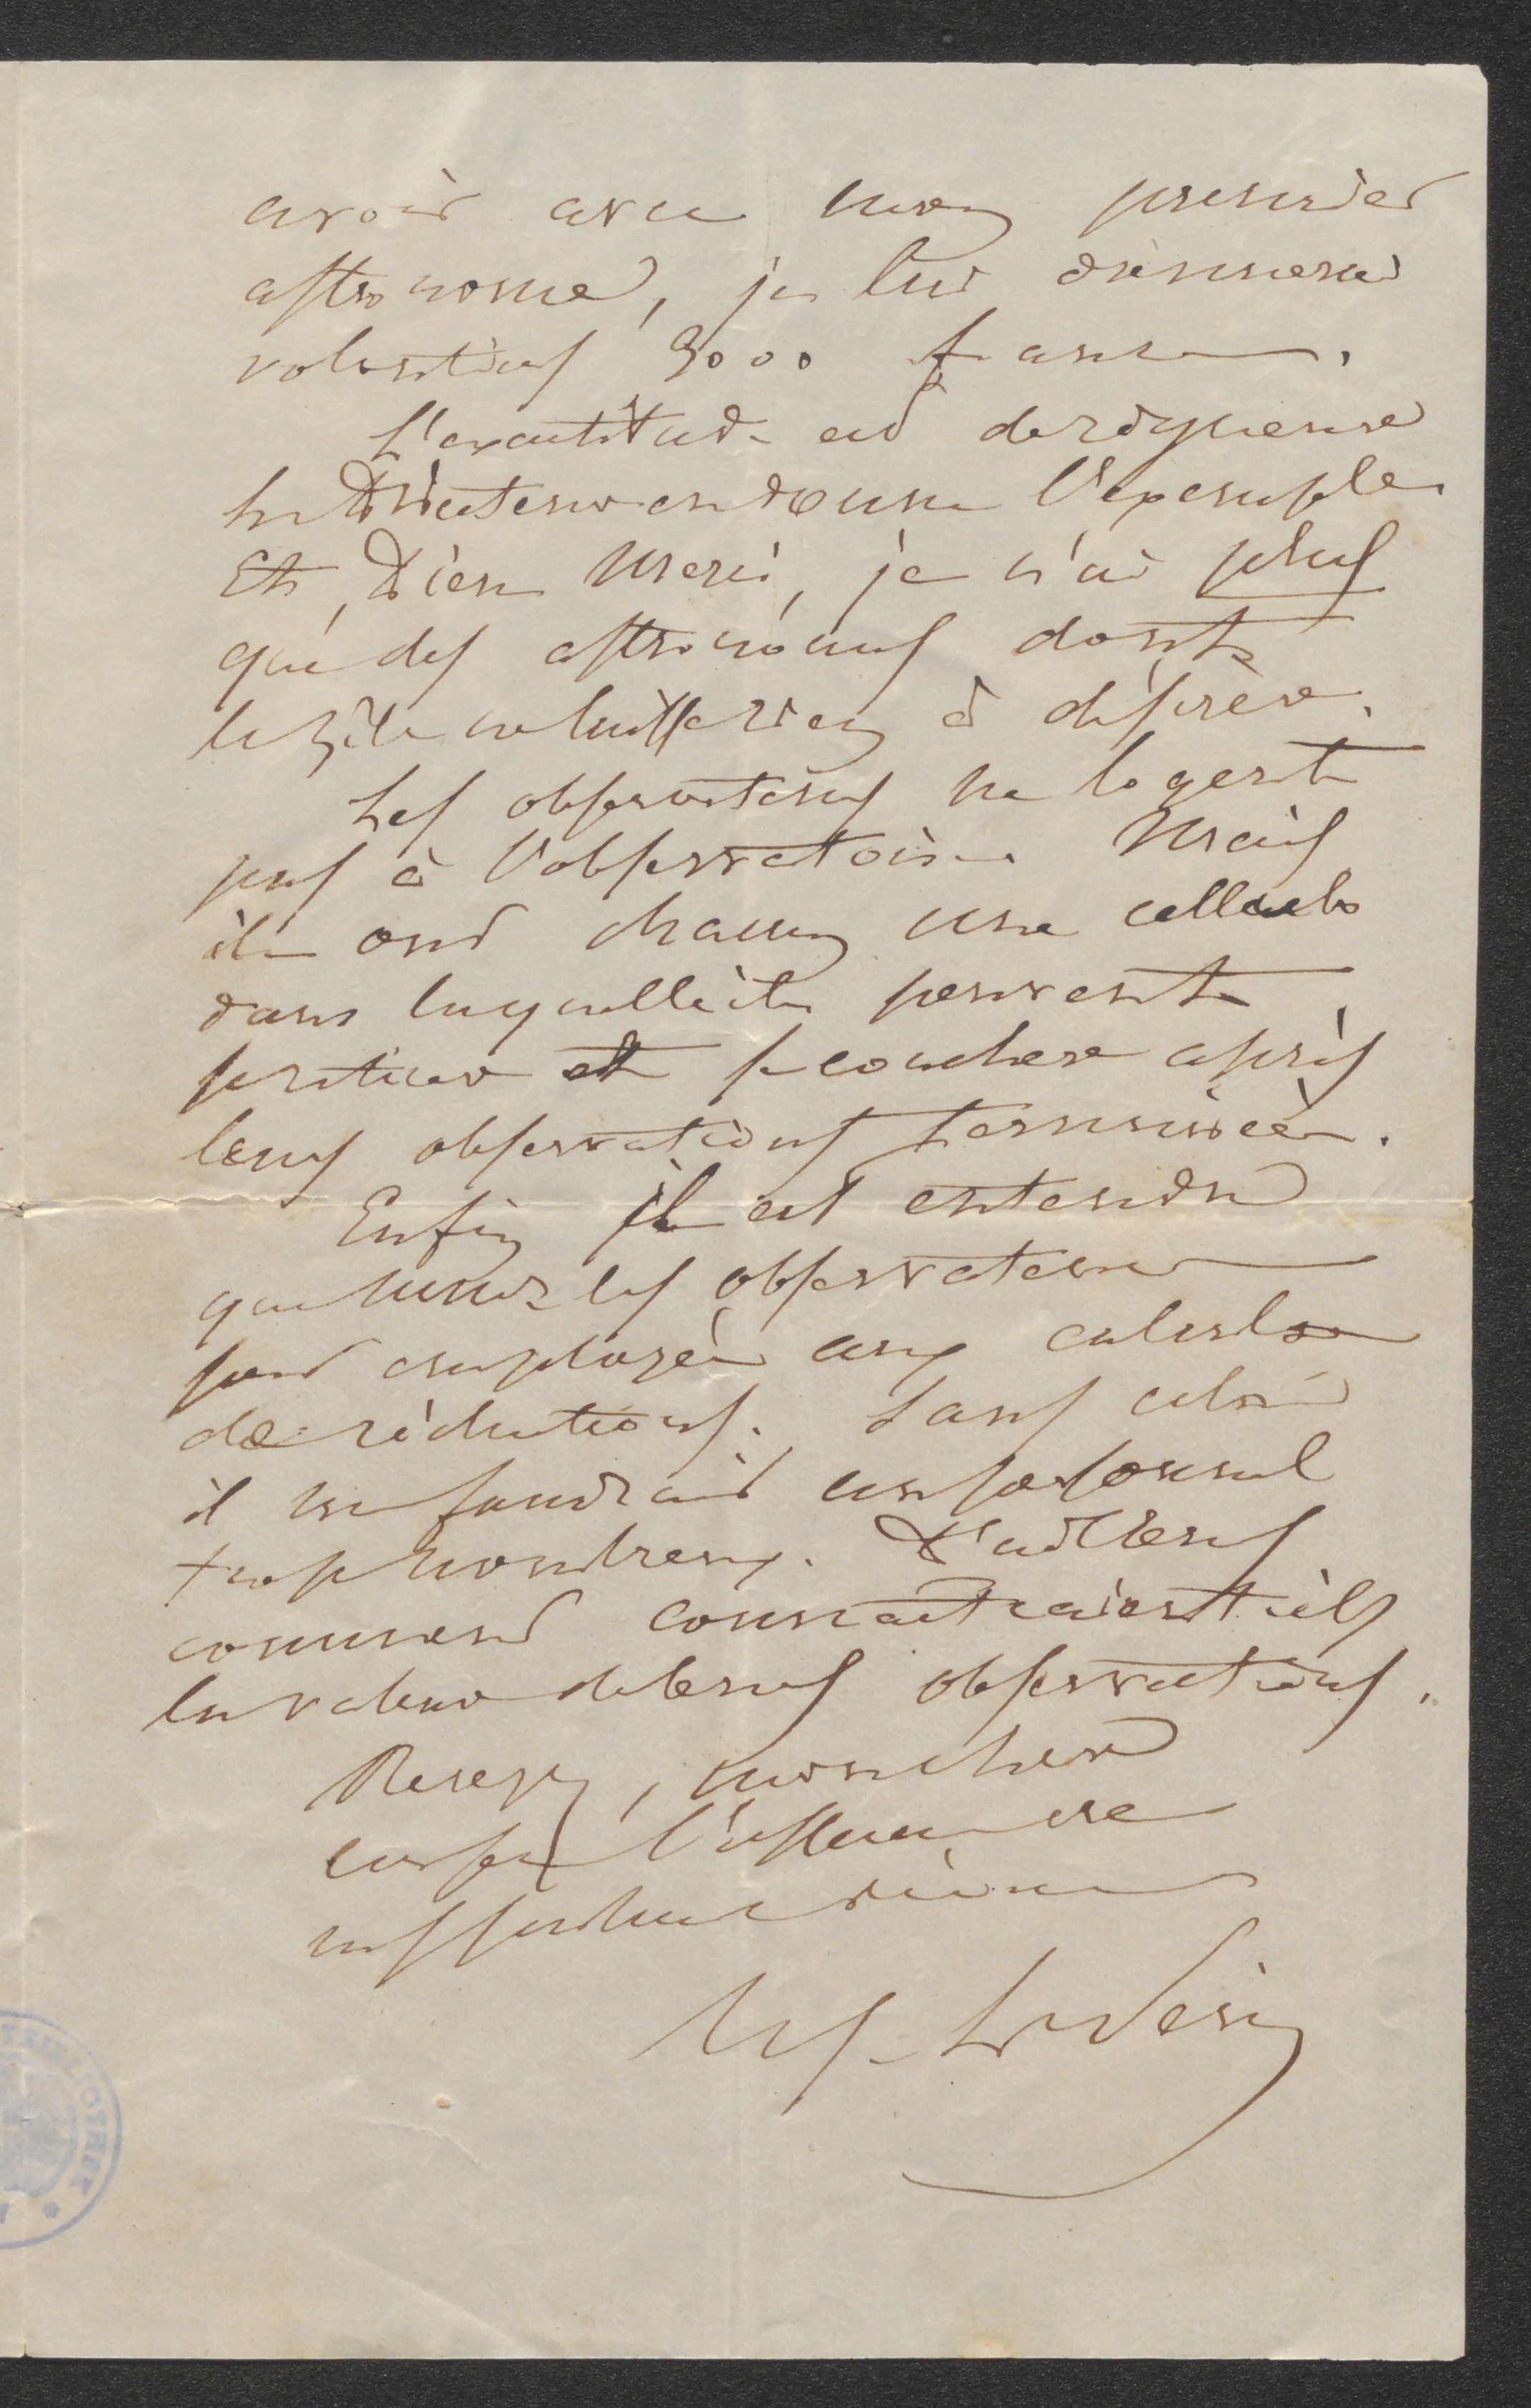 avoir avec mon premier
astronome, je lui donnerai
volontiers 9000 francs.
L'exactitude est de rigueur
le Directeur en donne l'exemple.
Et, Dieu merci, je n'ai plus
que des astronomes dont
le zèle ne laisse rien à désirer.
Les observateurs ne logent
pas à l'observatoire. Mais
ils ont chacun une cellule
dans laquelle ils peuvent
se retirer et se coucher après
leurs observations terminées.
Enfin il est entendu
que tous les observateurs
sont employés aux calculs
de réductions. Sans cela
il me faudrait un personnel
trop nombreux. D'ailleurs
comment connaîtraient-ils
la valeur de leurs observations.
Recevez, mon cher
l'assurance